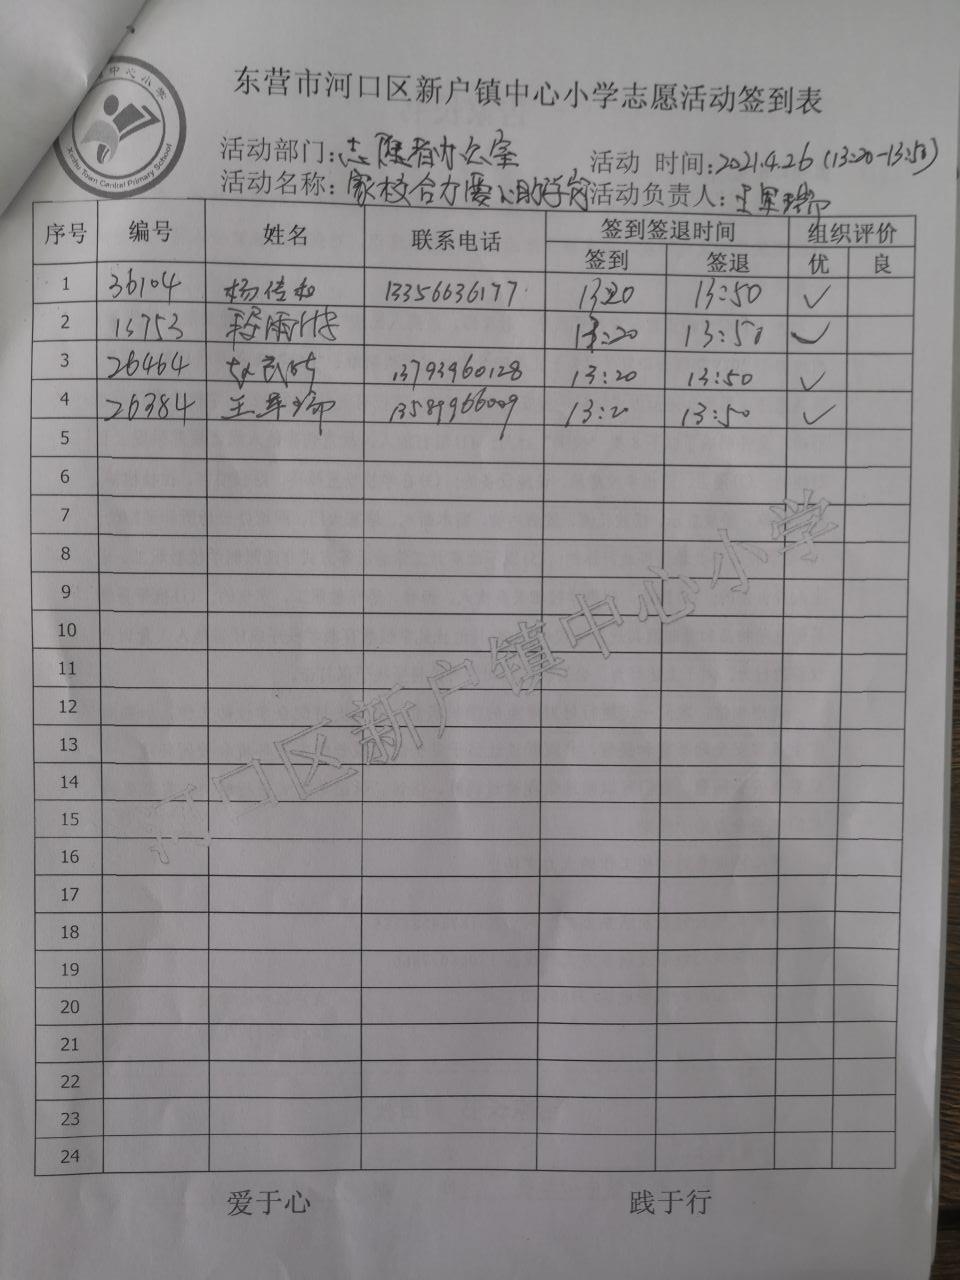 中心小学
Xinhu Town Central Primary School
东营市河口区新户镇中心小学志愿活动签到表
活动部门:志愿者办公室 活动 时间:2021.4.26(13:20-13:50)
活动名称:家校合力爱心助学岗 活动负责人:王军瑞
序号 编号 姓名 联系电话 签到签退时间 组织评价
签到 签退 优 良
1 36104 杨传和 13356636177 13:20 13:50 ✓
2 13753 13:20 13:50 ✓
3 26464 13793960128 13:20 13:50 ✓
4 26384 王军瑞 13589966009 13:20 13:50 ✓
5
6
7
8
9
10
11
12
13
14
15
16
17
18
19
20
21
22
23
24
河口区新户镇中心小学
爱于心 践于行